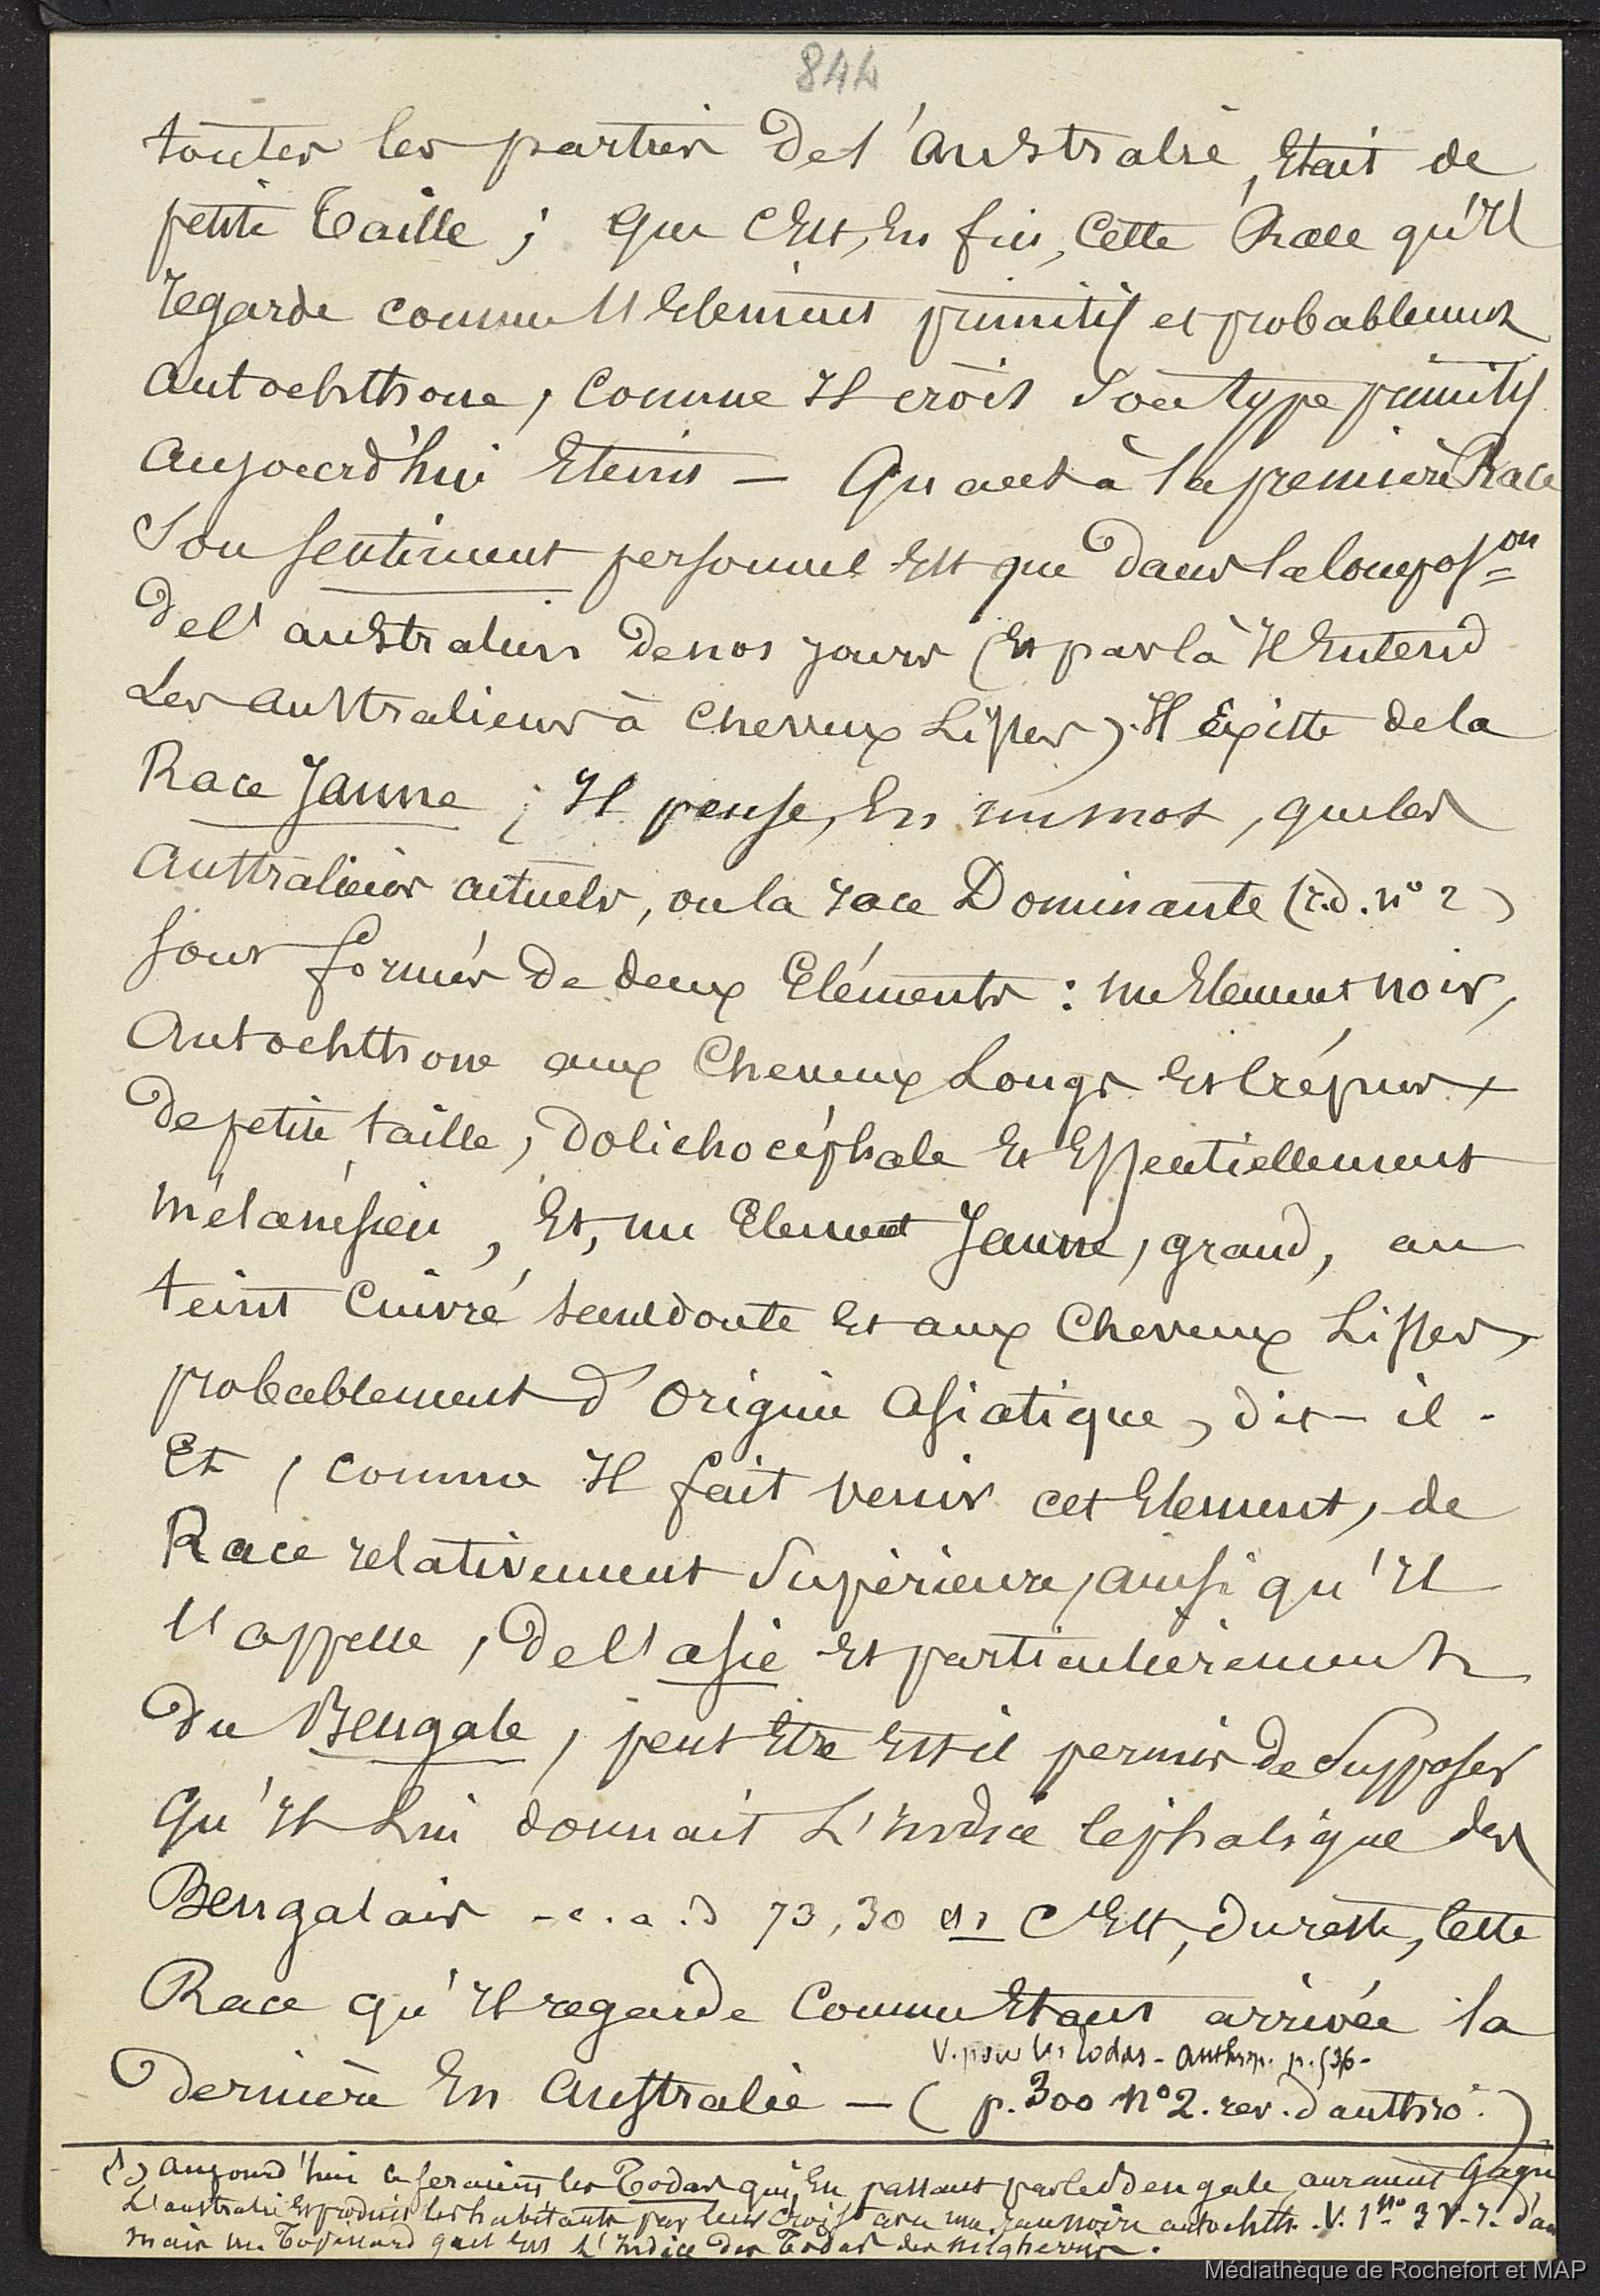 844
toutes les parties de l'australie, Etait de
petite taille ; que C'Est, En fin, Cette Race qu'Il
regarde comme l'Element primitif et probablement
autochthone, Comme Il croit Son type primitif
aujourd'hui Eteint — Quant à la première Race
Son sentiment personnel Est que dans la Compos.on
de l'australien de nos jours (Et par là Il Entend
Les australiens à cheveux Lisses) Il Existe de la
Race Jaune ; Il pense, En un mot, que les
Australiens actuels, ou la race Dominante (r.d. n° 2)
sont formés de deux Eléments : un Element noir,
Autochthone aux Cheveux Longs Et Crépus
de petite taille, Dolichocéphale Et Essentiellement
mélanésien, Et, un Element Jaune, grand, au
teint Cuivré sans doute Et aux Cheveux Lisses,
probablement d'origine asiatique, dit-il.
Et, comme Il fait venir cet Element, de
Race relativement Supérieure, ainsi qu'Il
l'appelle, de l'asie Et particulièrement
du Bengale, peut Etre Est il permis de Supposer
Qu'Il Lui donnait L'Indice Céphalique des
Bengalais - c.a.d 73,30 (1) C'Est, du reste, Cette
Race qu'Il regarde Comme Etant arrivée la
V. pour les Todas - Anthrop. p. 536 -
dernière En Australie — ( p. 300 n° 2. rev. d'anthro. )
(1) aujourd'hui ce seraient les Todas qui, En passant par le Bengale, auraient Gagné
L'australie Et produit les habitants par leur Crois.t avec une race noire autochth. V.
mais me Topinard quel Est L'Indice des Todas des Nilgherries.
Médiathèque de Rochefort et MAP